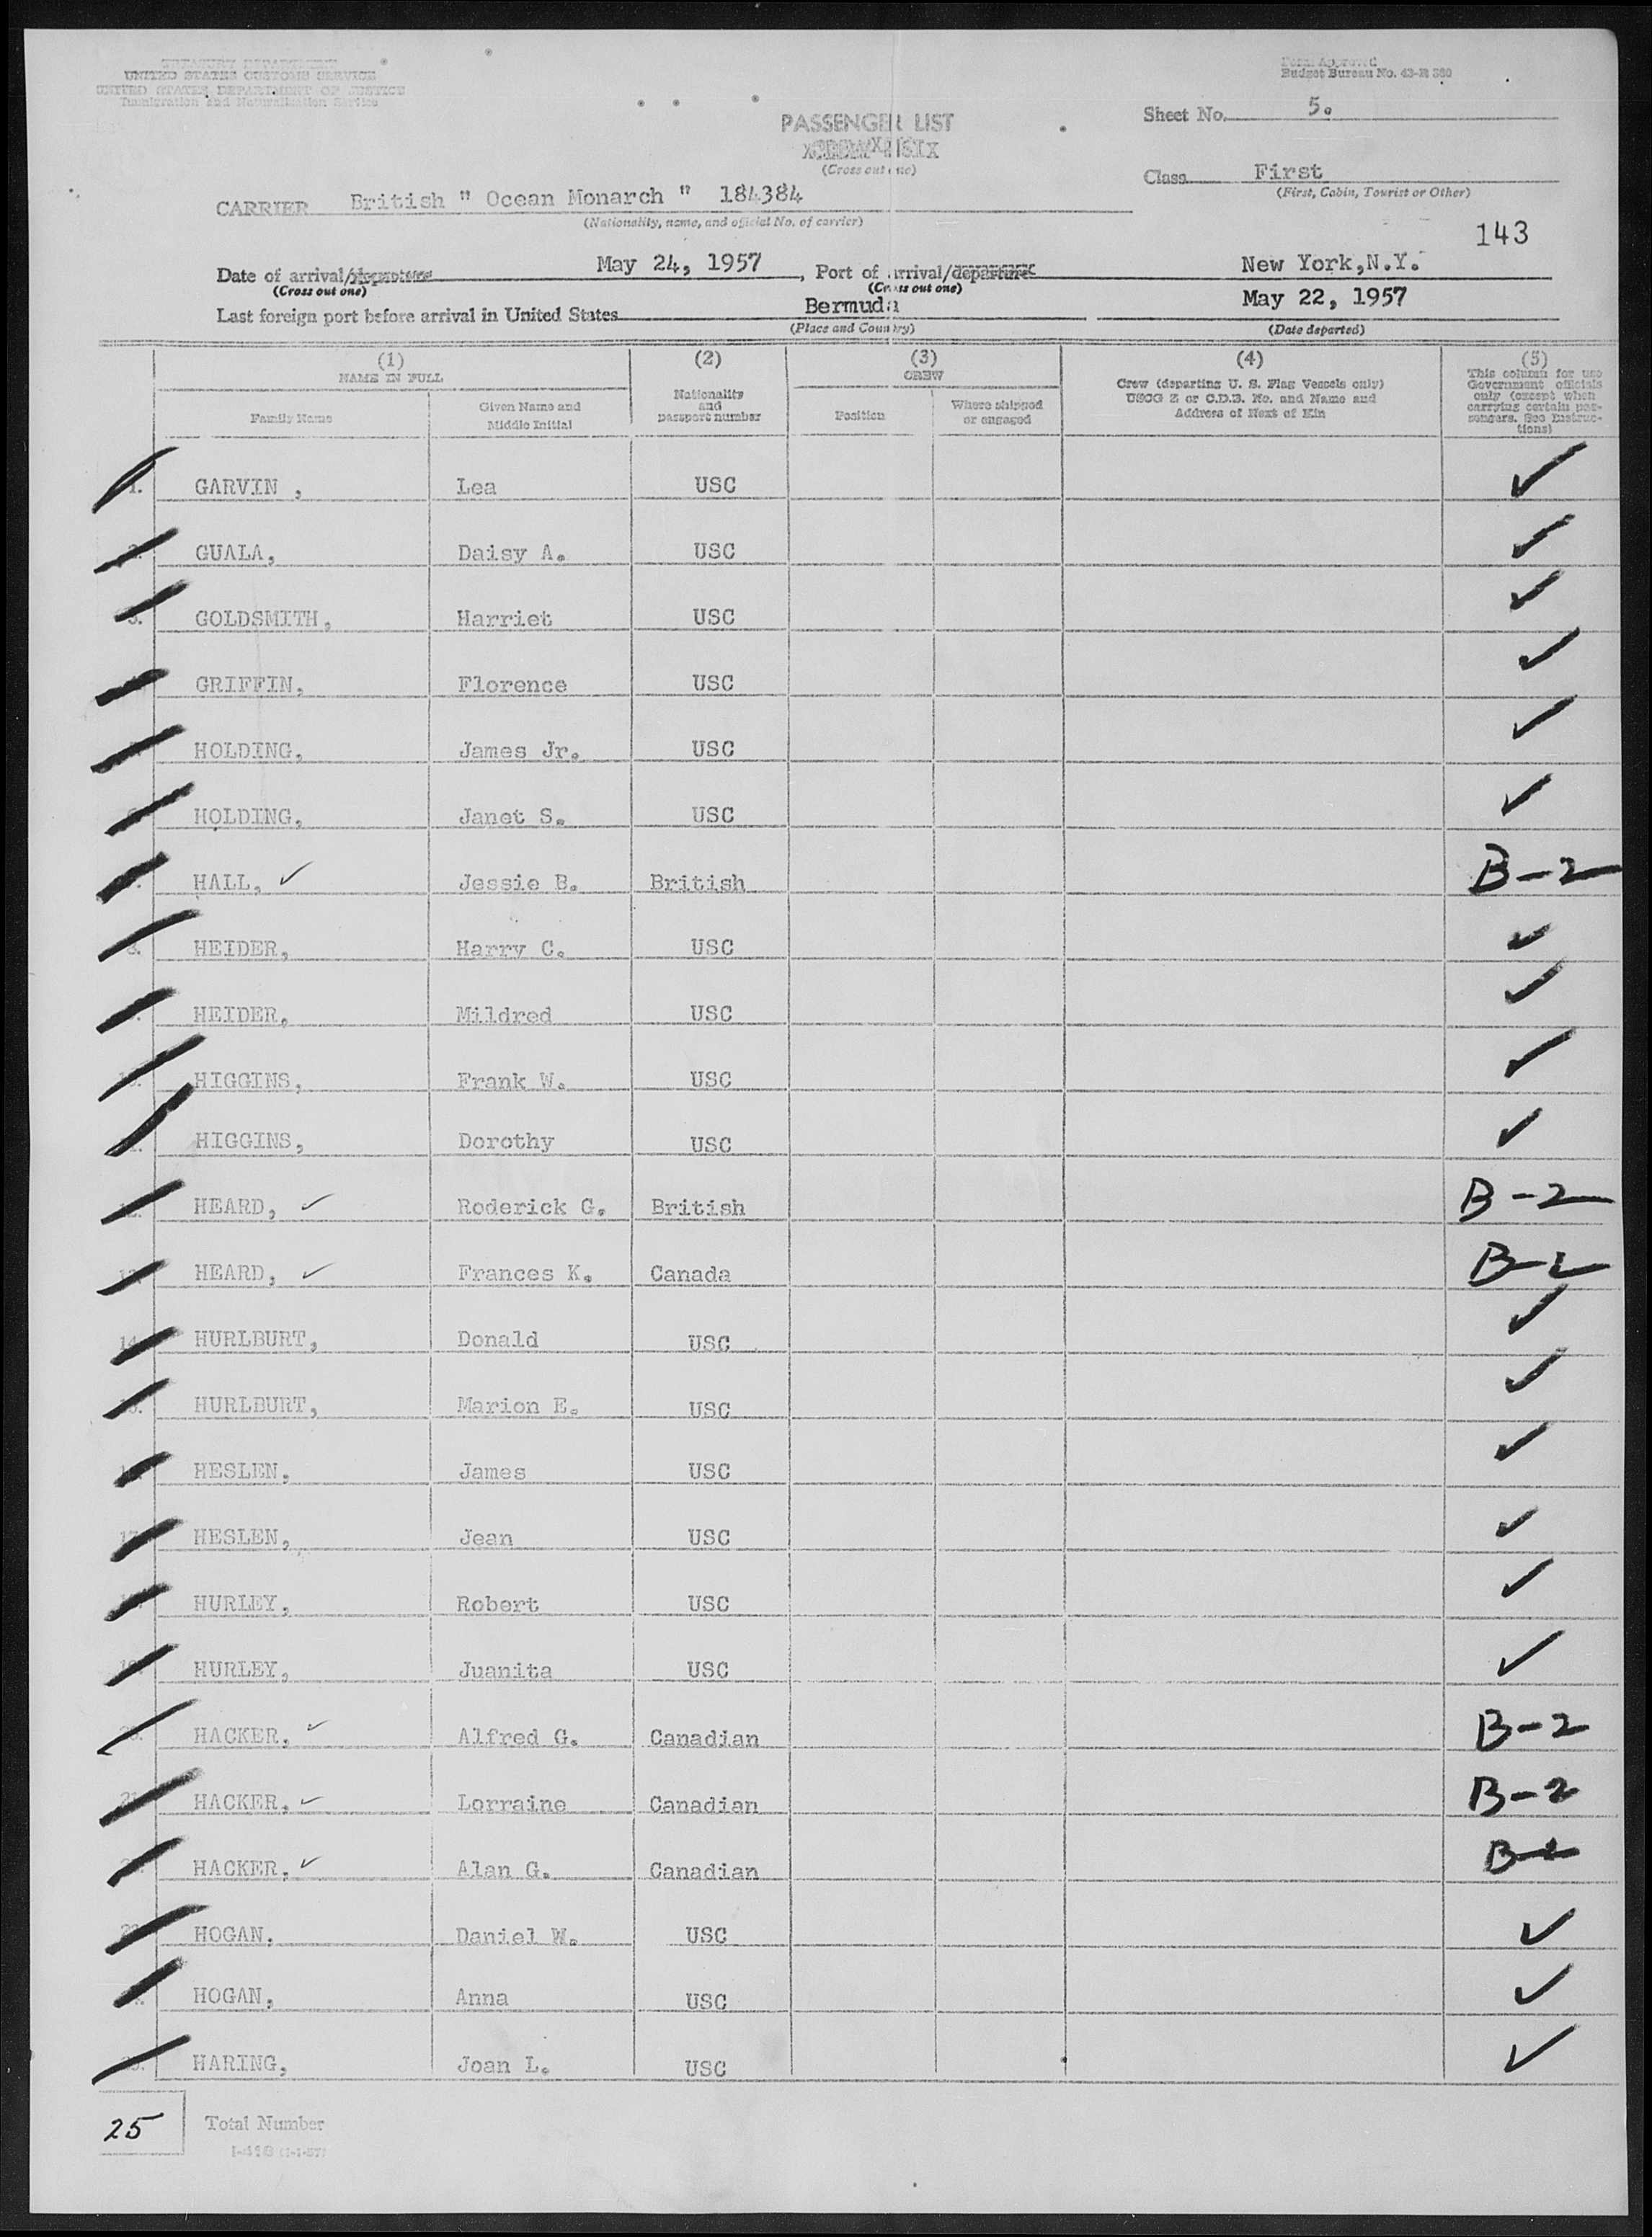 TREASURY DEPARTMENT
UNITED STATES CUSTOMS SERVICE
UNITED STATES DEPARTMENT OF JUSTICE
Immigration and Naturalization Service
Form Approved
Budget Bureau No. 43-R 380
Sheet No. 5.
PASSENGER LIST
(Cross out one)
Class First
(First, Cabin, Tourist or Other)
CARRIER British " Ocean Monarch " 184384
(Nationality, name, and official No. of carrier)
143
Date of arrival/departure May 24, 1957, Port of arrival/departure New York,N.Y.
(Cross out one) (Cross out one)
Last foreign port before arrival in United States Bermuda May 22, 1957
(Place and Country) (Date departed)
(1) (2) (3) (4) (5)
NAME IN FULL
Family Name
Given Name and Middle Initial
Nationality and passport number
CREW
Position
Where shipped or engaged
Crew (departing U. S. Flag Vessels only) USCG Z or C.D.B. No. and Name and Address of Next of Kin
This column for use Government officials only (except when carrying certain passengers. See Instructions)
1. GARVIN , Lea USC ✓
2. GUALA, Daisy A. USC ✓
3. GOLDSMITH, Harriet USC ✓
GRIFFIN, Florence USC ✓
HOLDING, James Jr. USC ✓
HOLDING, Janet S. USC ✓
HALL, ✓ Jessie B. British B-2
8. HEIDER, Harry C. USC ✓
HEIDER, Mildred USC ✓
HIGGINS, Frank W. USC ✓
HIGGINS, Dorothy USC ✓
12. HEARD, ✓ Roderick G. British B-2
13. HEARD, ✓ Frances K. Canada B-2
14. HURLBURT, Donald USC ✓
HURLBURT, Marion E. USC ✓
HESLEN, James USC ✓
17. HESLEN, Jean USC ✓
HURLEY, Robert USC ✓
19. HURLEY, Juanita USC ✓
HACKER, ✓ Alfred G. Canadian B-2
21. HACKER, ✓ Lorraine Canadian B-2
HACKER, ✓ Alan G. Canadian B-2
23. HOGAN, Daniel W. USC ✓
HOGAN, Anna USC ✓
25. HARING, Joan L. USC ✓
25 Total Number
I-418 (1-1-57)